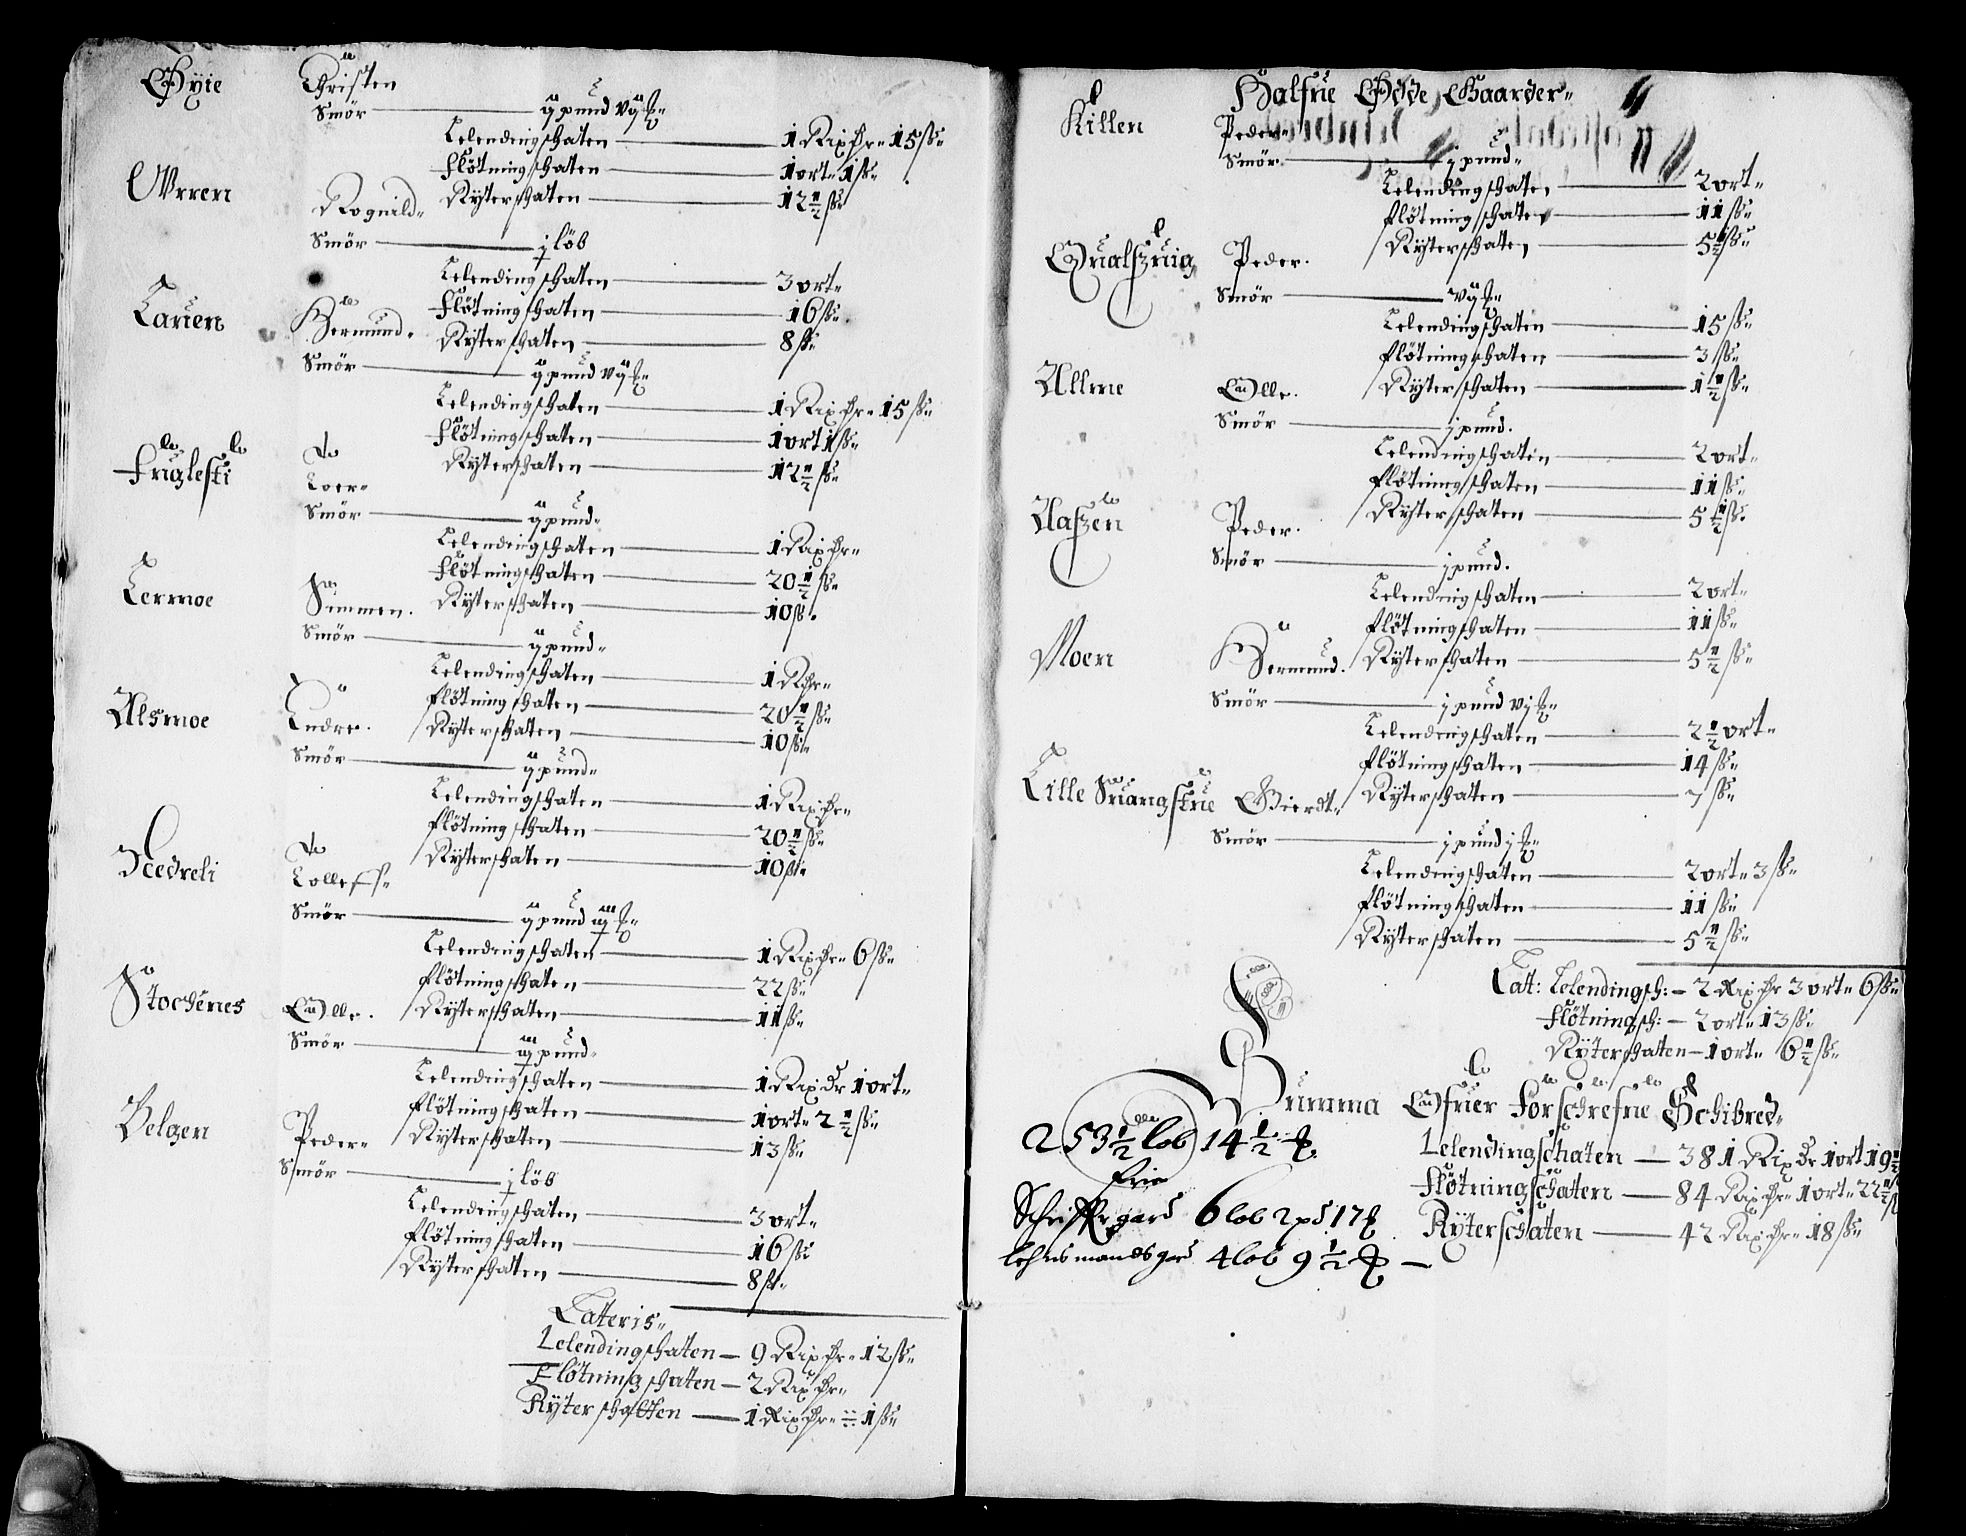 Øÿie Christen
Smör — ij pund vij ℔
Lelendingschaten — 1 Rix dr 15 ß
flötningschaten — 1 ort 1 ß
Rÿterschaten — 12 ½ ß
Orren Rognild
Smör — j löb
Lelendingschaten — 3 ort
flötningschaten — 16 ß
Rÿterschaten — 8 ß
Laruen Hermund
Smör — ij pund vij ℔
Lelendingschaten — 1 Rix dr 15 ß
flötningschaten — 1 ort 1 ß
Rÿterschaten — 12 ½ ß
fuglesti Toer
Smör — ij pund
Lelendingschaten — 1 Rix dr
flötningschaten — 20 ½ ß
Rÿterschaten — 10 ß
Lermoe Simmen
Smör — ij pund
Lelendingschaten — 1 R dr
flötningschaten — 20 ½ ß
Rÿterschaten — 10 ß
Alsmoe Endre
Smör — ij pund
Lelendingschaten — 1 Rix dr
flötningschaten — 20 ½ ß
Rÿterschaten — 10 ß
Nedreli Tollefs
Smör — ij pund iij ℔
Lelendingschaten — 1 Rix dr 6 ß
flötningschaten — 22 ß
Rÿterschaten — 11 ß
Stochenes Olle
Smör — iij pund
Lelendingschaten — 1 Rix dr 1 ort
flötningschaten — 1 ort 2 ½ ß
Rÿterschaten — 13 ß
Velgen Peder
Smör — j löb
Lelendingschaten — 3 ort
flötningschaten — 16 ß
Rÿterschaten — 8 ß
Lateris
Lelendingschaten — 9 Rix dr 12 ß
Flötningschaten — 2 Rix dr
Rÿterschatten — 1 Rix dr 1 ß
Halfue Øde Gaarder
Killen Peder
Smör — j pund
Lelendingschaten — 2 ort
flötningschaten — 11 ß
Rÿterschaten — 5 ½ ß
Qualszuig Peder
Smör — vij ℔
Lelendingschaten — 15 ß
flötningschaten — 3 ß
Rÿterschaten — 1 ½ ß
Allme Olle
Smör — j pund
Lelendingschaten — 2 ort
flötningschaten — 11 ß
Rÿterschaten — 5 ½ ß
Aaszen Peder
Smör — j pund
Lelendingschaten — 2 ort
flötningschaten — 11 ß
Rÿterschaten — 5 ½ ß
Moen Hermund
Smör — j pund vj ℔
Lelendingschaten — 2 ½ ort
flötningschaten — 14 ß
Rÿterschaten — 7 ß
Lille Suangstue Gierdt
Smör — j pund j ℔
Lelendingschaten — 2 ort 3 ß
flötningschaten — 11 ß
Rÿterschaten — 5 ½ ß
Latt: Lelendingsch: — 2 Rix dr 3 ort 6 ß
flötningsch: — 2 ort 13 ß
Rÿterschaten — 1 ort 6 ½ ß
Summa Ofuer forschrefne Schibred
253 ½ lob 14 ½ ℔
Lelendingschaten — 381 Rix dr 1 ort 19 ½
frie
flötningschaten — 84 Rix dr 1 ort 22 ½ ß
Schriffr gard 6 lob 2 pd 17 ℔
Rÿterschaten — 42 Rix dr 18 ß
lehnsmands grd 4 lob 9 ½ ℔ —